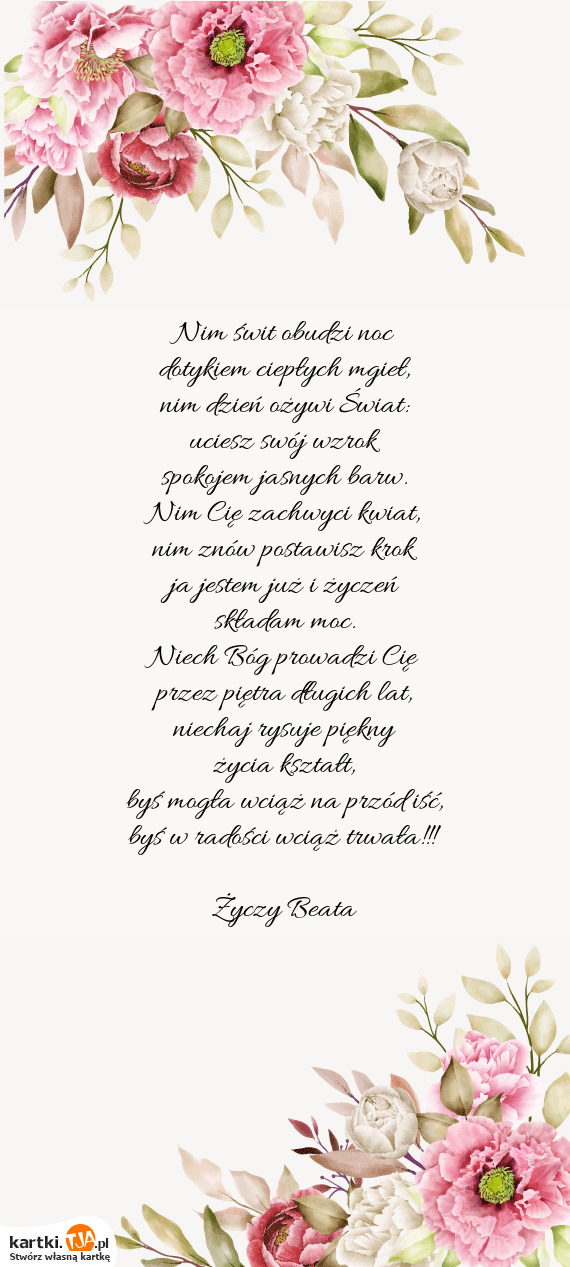 Nim świt obudzi noc
dotykiem ciepłych mgieł,
nim dzień ożywi Świat:
uciesz swój wzrok
spokojem jasnych barw.
Nim Cię zachwyci kwiat,
nim znów postawisz krok
ja jestem już i życzeń
składam moc.
Niech Bóg prowadzi Cię
przez piętra długich lat,
niechaj rysuje piękny
życia kształt,
byś mogła wciąż na przód iść,
byś w radości wciąż trwała!!!
Życzy Beata
kartki.TJA.pl
Stwórz własną kartkę